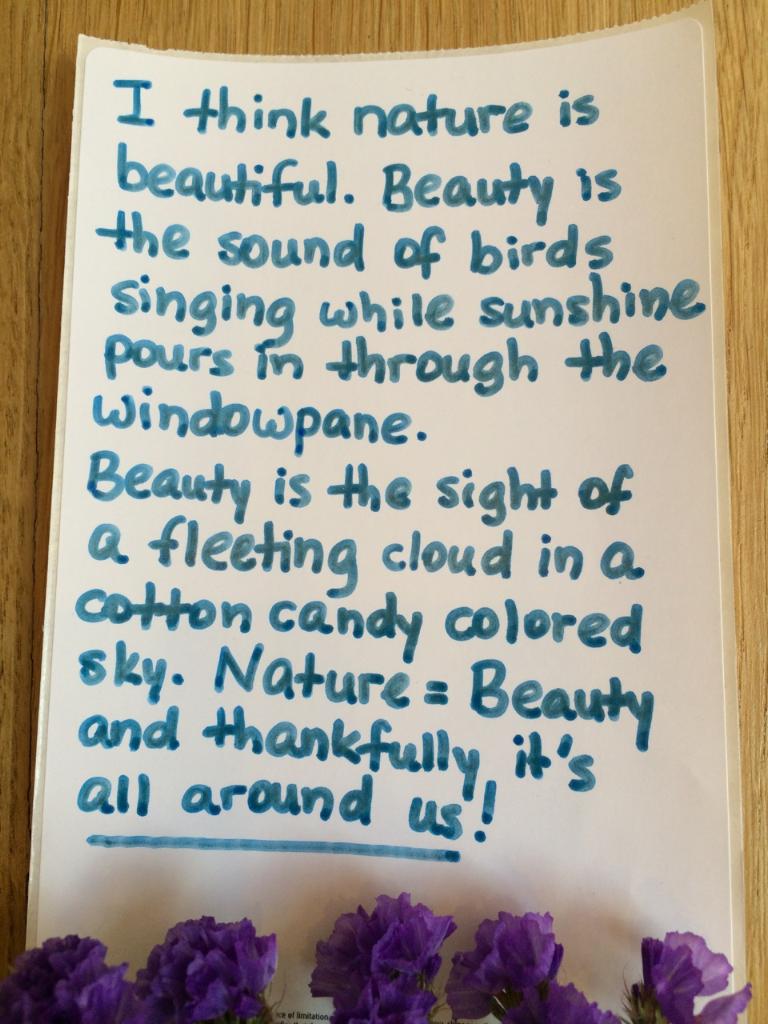 I think nature is
beautiful. Beauty is
the sound of birds
singing while sunshine
pours in through the
windowpane.
Beauty is the sight of
a fleeting cloud in a
cotton candy colored
sky. Nature = Beauty
and thankfully it's
all around us!
of limitation